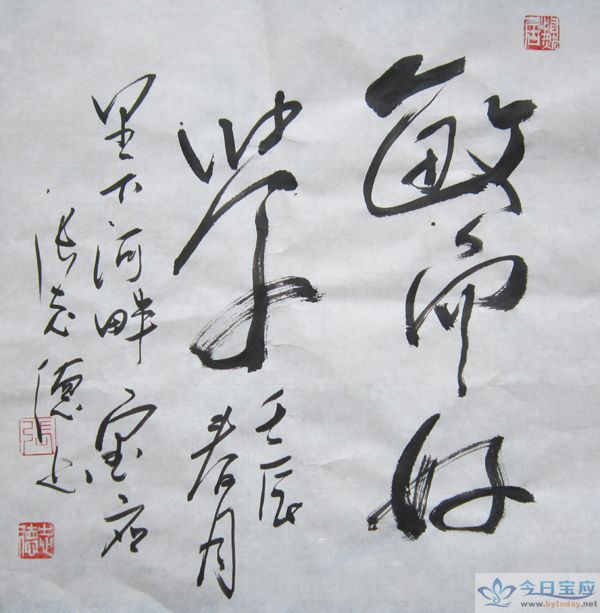 敏而好
学
壬辰
春月
里下河畔宝应
张志德书
張
志德
今日宝应
www.bytoday.net